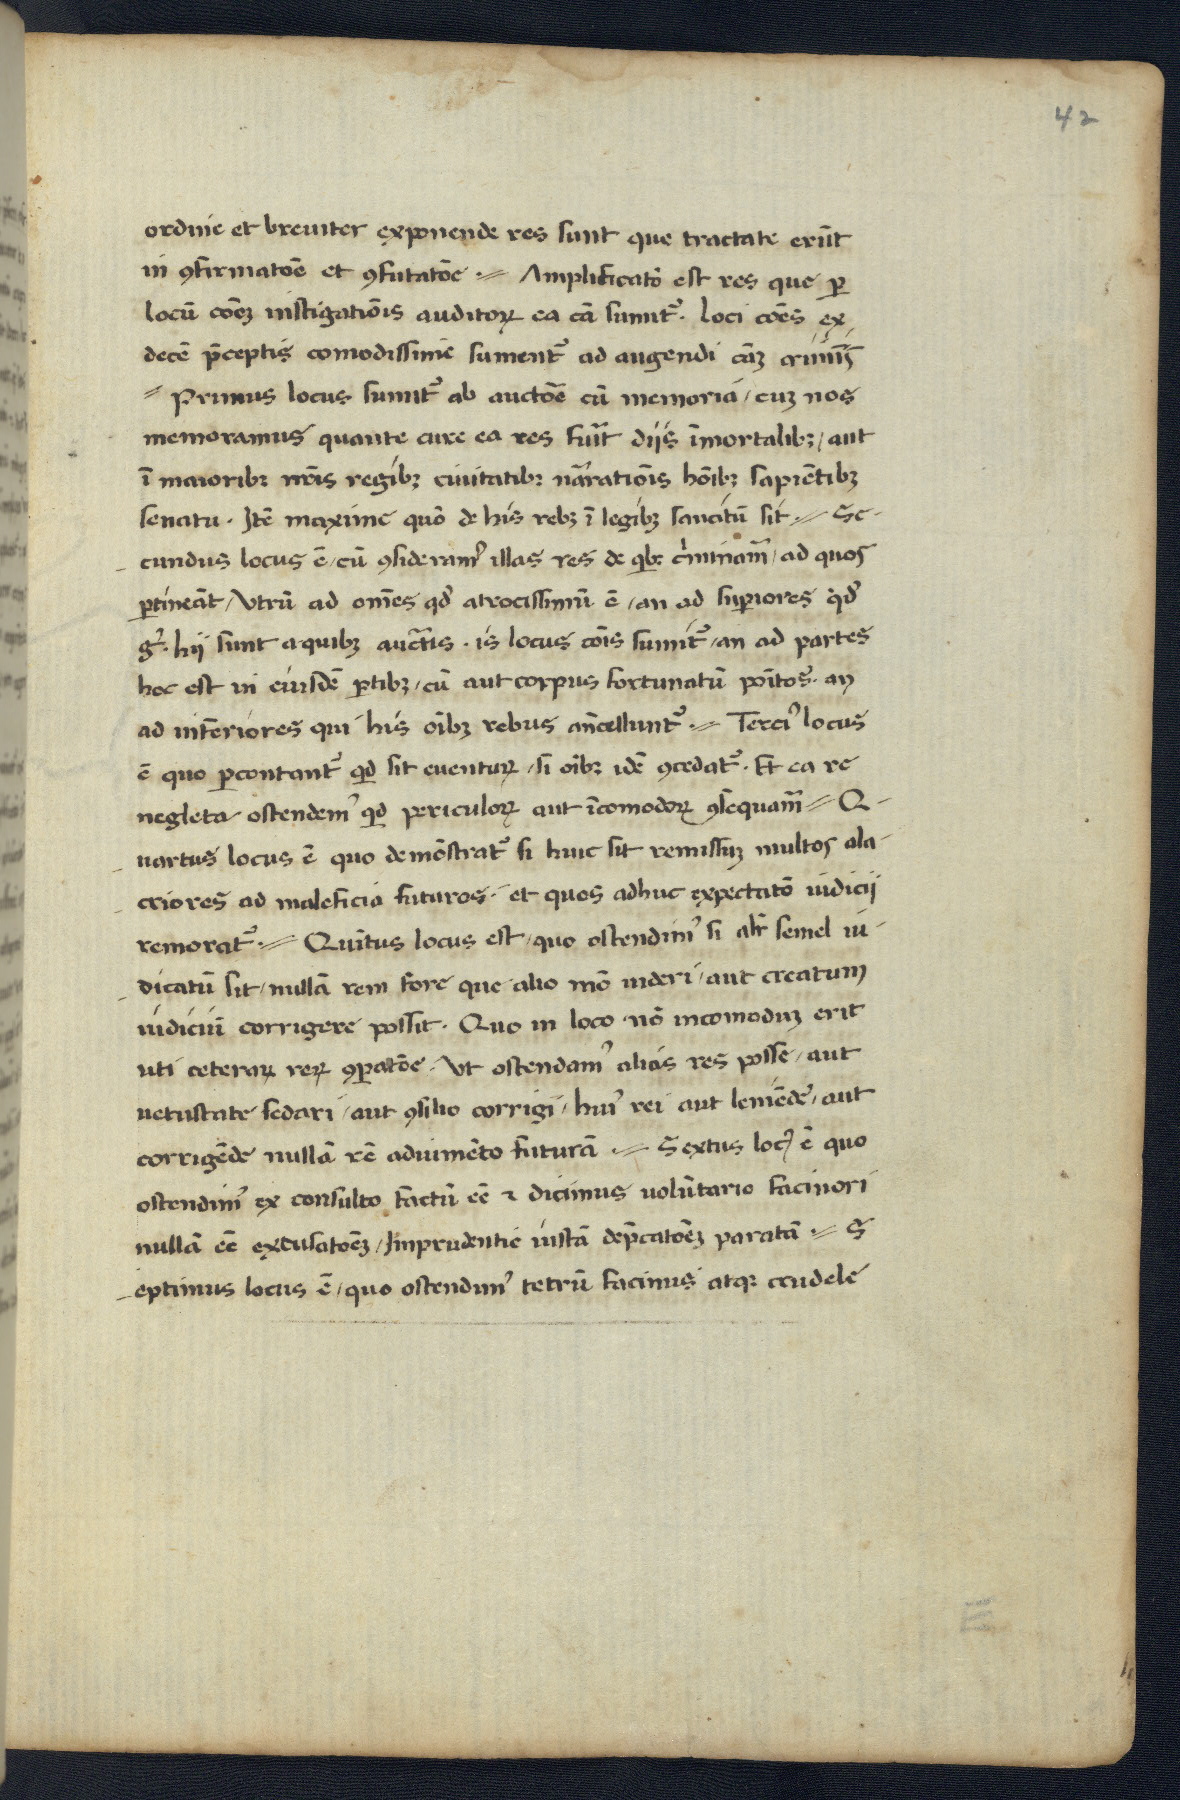 42
ordine et breuiter exponende res sunt que tractate erūt
in ꝯfirmatōe et ꝯfutatōe . Amplificatō est res que ꝑ
locū cōeꝫ instigatiōis auditoꝝ ea cā sumit᷑. loci cōes ex
decē p̄ceptis comodissime sument᷑ ad augendi cāꝫ
Primus locus sumit᷑ ab auctōe cū memoria / cuꝫ nos
memoramus quante cure ea res diis īmortalibꝫ / aut
ī maioribꝫ nr̄is regibꝫ ciuitatibꝫ hōibꝫ sapiētibꝫ
senatu . Itē maxime quō de his rebꝫ ī legibꝫ sancitū sit . Se-
cundus locus ē / cū ꝯsideramꝰ illas res de qͥbꝫ / ad quos
ꝑtineāt / Vtrū ad omēs qd̓ atrocissimū ē / an ad suꝑiores qd̓
gͥ. hij sunt a quibꝫ . is locus cōis sumit᷑ / an ad partes
hoc est in eiusdē ꝑtibꝫ / cū aut corpus fortunatū . an
ad inferiores qui his oībꝫ rebus . Terciꝰ locus
ē quo ꝑcontant᷑ qͥd sit euentuꝝ / si oībꝫ idē ꝯcedat᷑. Et ea re
negleta ostendemꝰ qͥd periculoꝝ aut īcomodoꝝ Q-
uartus locus ē quo demōstrat᷑ si huic sit remissuꝫ multos ala-
criores ad maleficia futuros . et quos adhuc expectatō iudicii
remorat᷑ . Quītus locus est / quo ostendimꝰ si semel iu-
dicatū sit / nullā rem fore que alio mō uideri / aut creatum
iudiciū corrigere possit . Quo in loco nō incomoduꝫ erit
uti ceteraꝝ reꝝ ꝯꝑatōe . Vt ostendamꝰ alias res posse / aut
uetustate sedari / aut ꝯsilio corrigi / huiꝰ rei aut leniēde / aut
corrigēde nullā rē adiumēto futurā . Sextus locꝰ ē quo
ostendimꝰ ex consulto factū eē ⁊ dicimus uolūtario facinori
nullā eē excusatōeꝫ / Imprudentie iustā dep̄catōeꝫ paratā . S
eptimus locus ē / quo ostendimꝰ tetrū facinus atqꝫ crudele